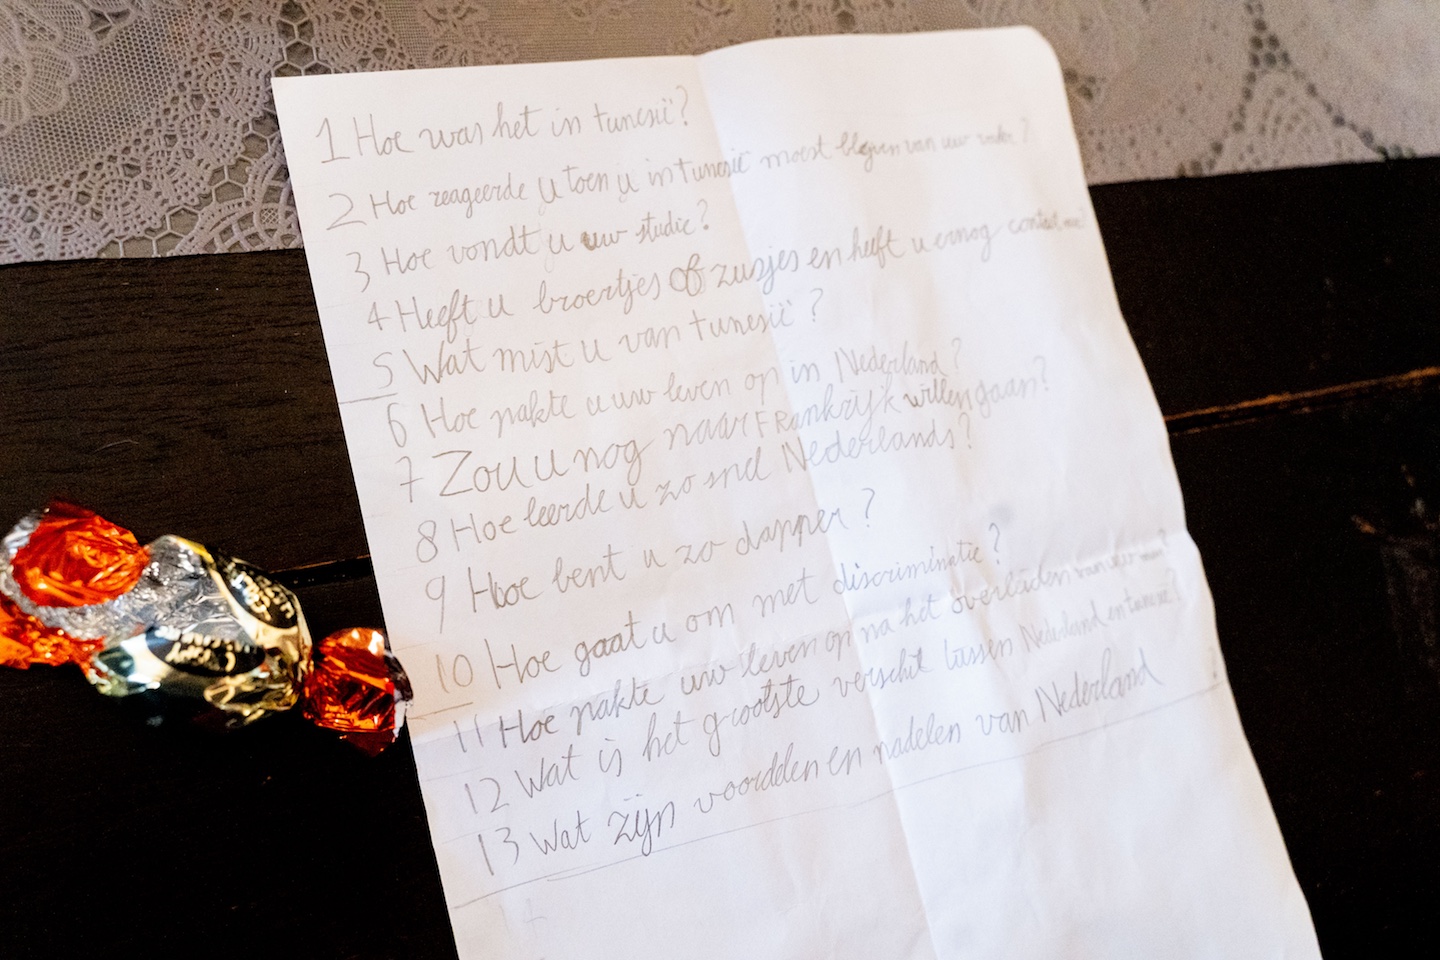 1 Hoe was het in tunesië?
2 Hoe reageerde u toen u in tunesië moest blijven van uw vader?
3 Hoe vondt u uw studie?
4 Heeft u broertjes of zusjes en heeft u ernog contact mee?
5 Wat mist u van tunesië?
6 Hoe pakte u uw leven op in Nederland?
7 Zou u nog naar Frankrijk willen gaan?
8 Hoe leerde u zo snel Nederlands?
9 Hoe bent u zo dapper?
10 Hoe gaat u om met discriminatie?
11 Hoe pakte uw leven op na het overleiden van uw man?
12 Wat is het grootste verschil tussen Nederland en tunesie?
13 Wat zijn voordelen en nadelen van Nederland ?
14